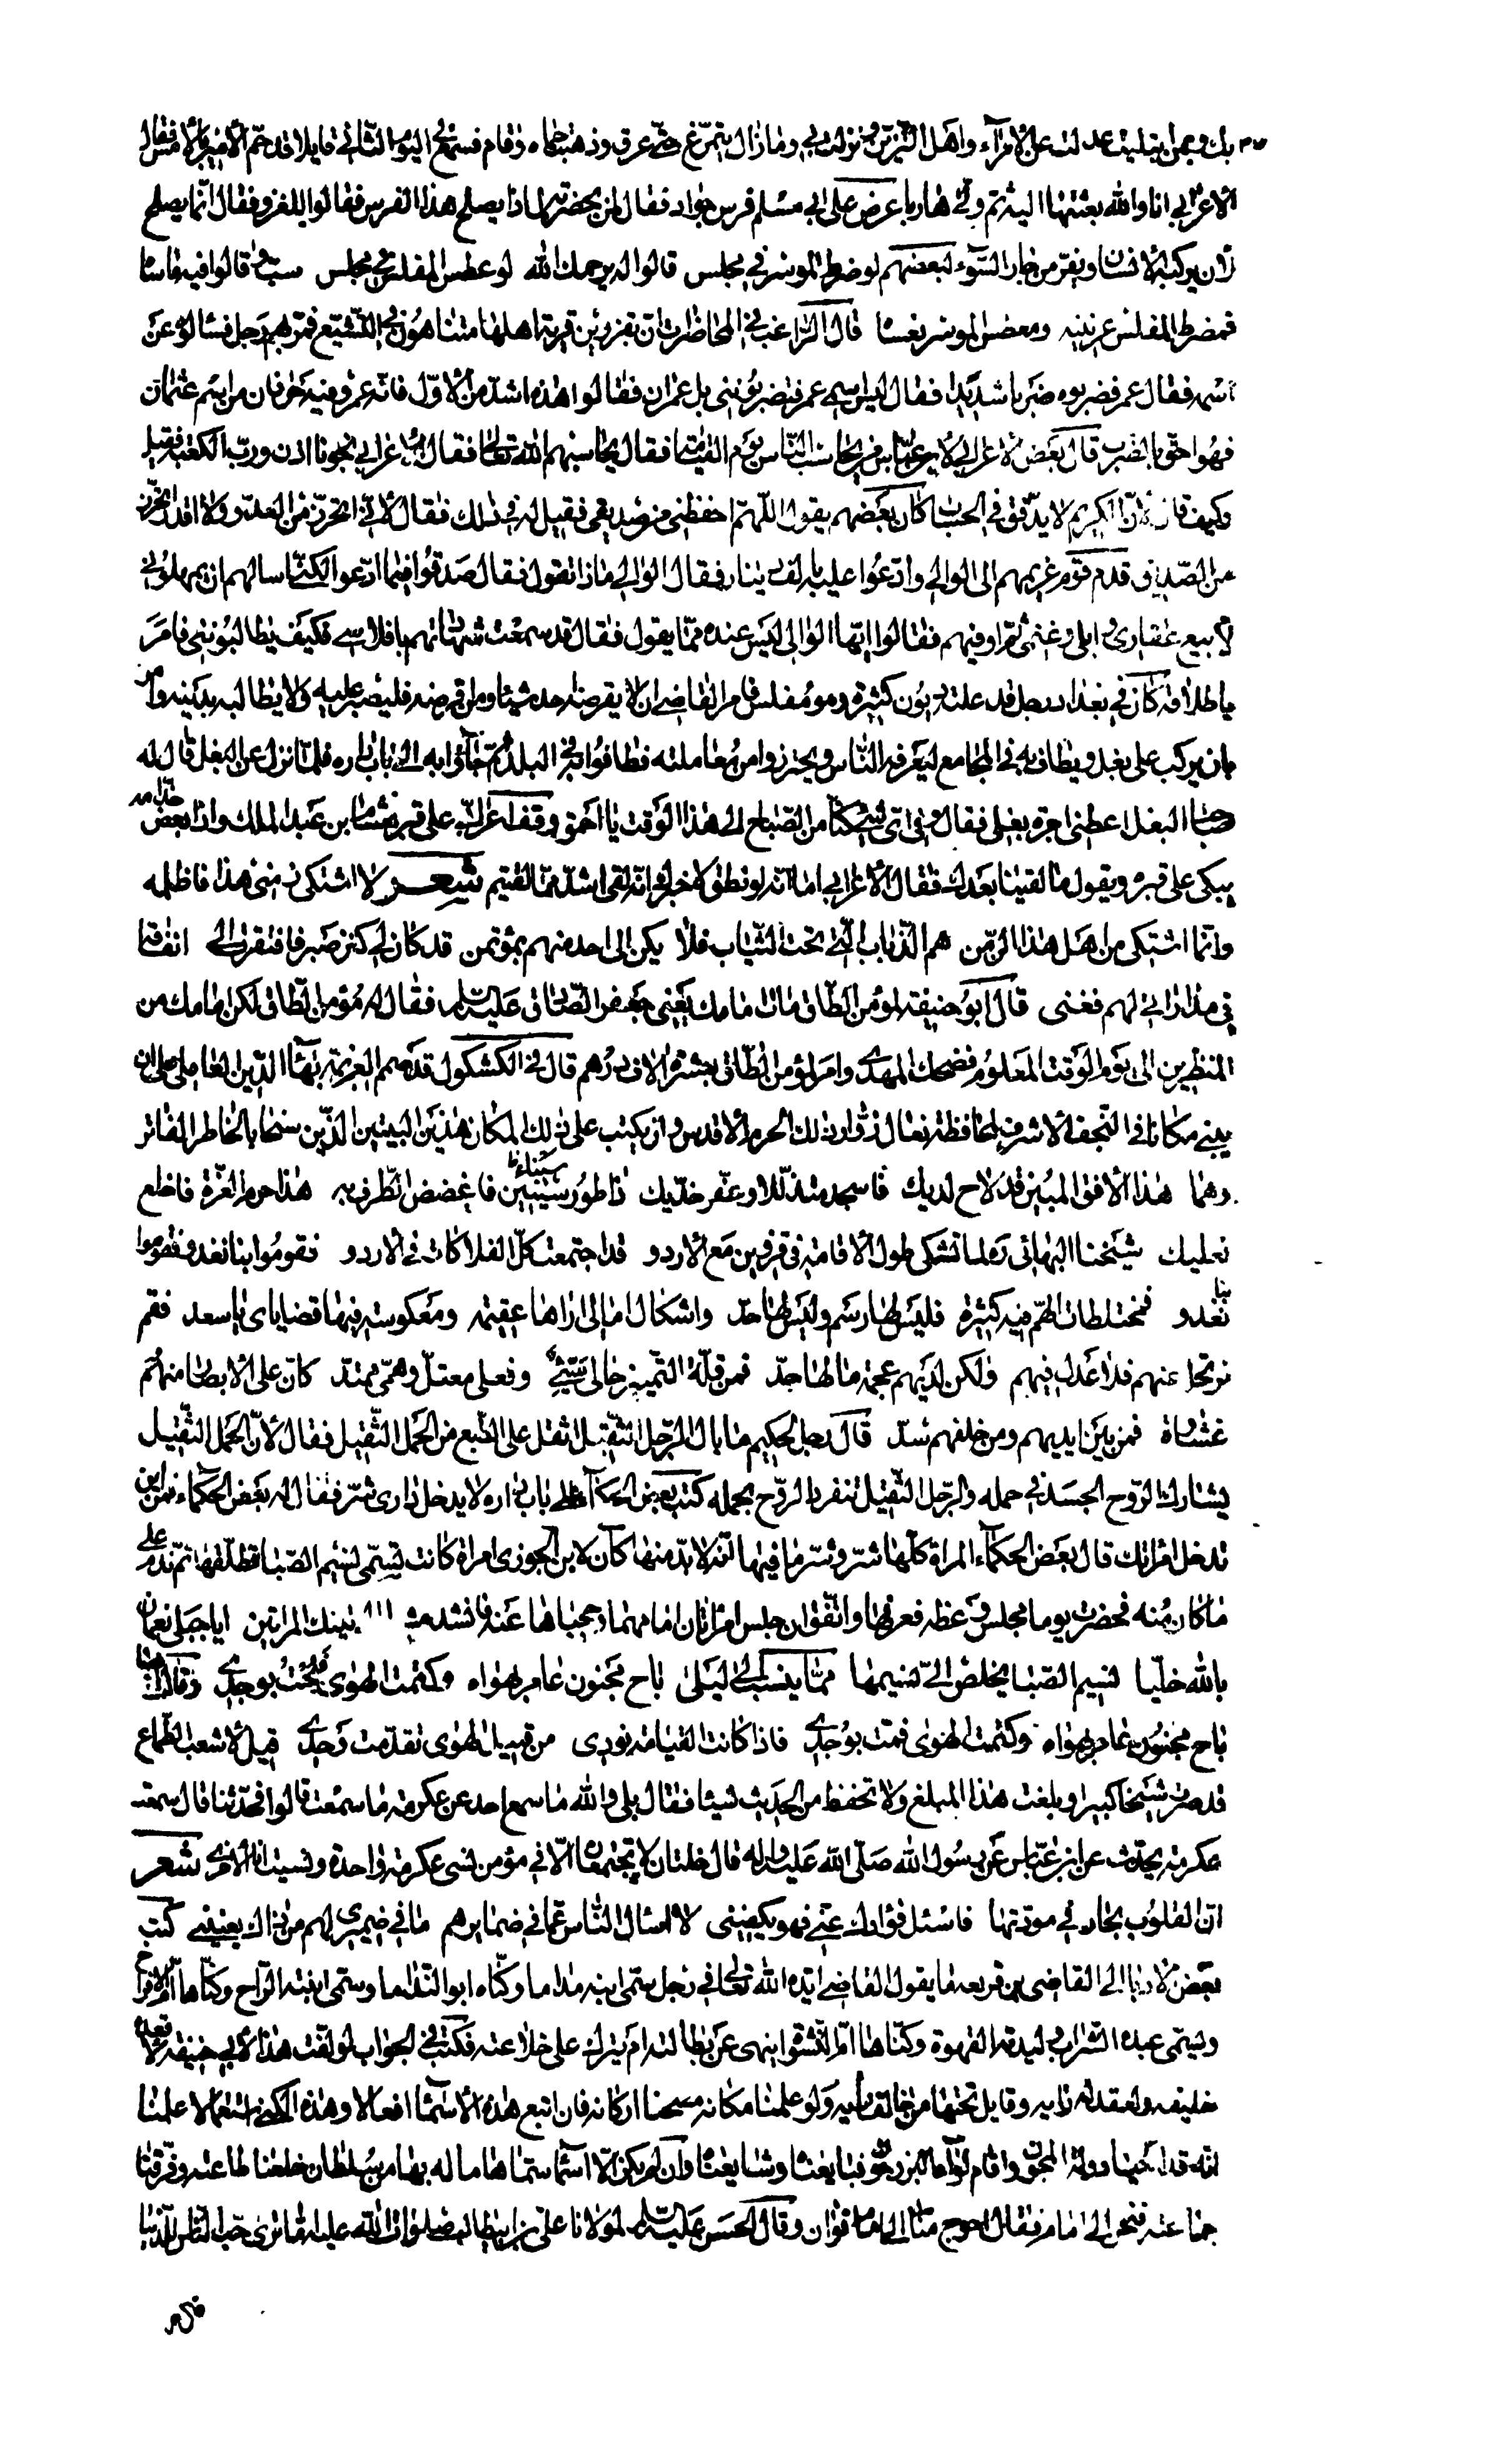 بك وبمن ابتليت عدلت عن الامرآء واهل الثرى ونزلت بى وما زال يتمرغ حتى عرق وذهبت حماه وقام فسمع فى اليوم الثانى قايلا قد حم الامير بالامس فقال
الاعرابى انا والله بعثتها اليه ثم ولى هاربا عرض على ابى مسلم فرس جواد فقال لمن بحضرته لماذا يصلح هذا الفرس فقالوا للغزو فقال انما يصلح
لان يركبه الانسان ويفر من جار السوء لبعضهم لو ضرط الموسر فى مجلس قالوا له يرحمك الله لو عطس المفلس فى مجلس سب وقالوا فيه ما ساه
فمضرط المفلس عرنينه ومعطس الموسر مفساه قال الراغب فى المحاضرات ان بقزوين قرية اهلها متناهون فى التشيع فمر بهم رجل فسالوه عن
اسمه فقال عمر فضربوه ضربا شديدا فقال ليس اسمى عمر فتضربوننى بل عمران فقالوا هذه اشد من الاول فانه عمر وفيه حرفان من اسم عثمان
فهو احق بالضرب قال بعض الاعراب لابن عباس من يحاسب الناس يوم القيمة فقال يحاسبهم الله تعالى فقال الاعرابى نجونا اذن ورب الكعبة فقيل
وكيف قال ان الكريم لا يدقق فى الحساب كان بعضهم يقول اللهم احفظنى من صديقى فقيل له فى ذلك فقال لانى اتحرز من العدو ولا اقدر اتحرز
من الصديق قدم قوم غريمهم الى الوالى وادعوا عليه بالف دينار فقال الوالى ماذا تقول فقال صدقوا فيما ادعوا لكنى اسالهم ان يمهلونى
لابيع عقارى وابلى وغنمى ثم اوفيهم فقالوا ايها الوالى ليس عنده مما يقول فقال قد سمعت شهادتهم بافلاسى فكيف يطالبوننى فامر
باطلاقه كان فى بغداد رجل قد علته ديون كثيرة وهو مفلس فامر القاضى ان لا يقرضه احد شيئا ومن اقرضه فليصبر عليه ولا يطالبه بدينه وامر
بان يركب على بغل ويطاف به فى المجامع ليعرفه الناس ويحترزوا من معاملته فطافوا به فى البلد ثم جاؤا به الى باب داره فلما نزل عن البغل قال له
صاحب البغل اعطنى اجرة بغلى فقال واى شئ كنا من الصباح الى هذا الوقت يا احمق وقف اعرابى على قبر هشام بن عبد الملك واذا بعض خدامه
يبكى على قبره ويقول ما لقينا بعدك فقال الاعرابى اما انه لو نطق لاخبر انه لقى اشد مما لقيتم شعر لا اشتكى زمنى هذا فاظلمه
وانما اشتكى من اهل هذا الزمن هم الذباب التى تحت الثياب فلا يكن الى احد منهم بمؤتمن قد كان لى كنز صبر فافتقرت الى انفاقه
فى مداراتى لهم ففنى قال ابو حنيفة لمؤمن الطاق مات امامك يعنى جعفر الصادق عليه السلام فقال له مؤمن الطاق لكن امامك من
المنظرين الى يوم الوقت المعلوم فضحك المهدى وامر لمؤمن الطاق بعشرة الاف درهم قال فى الكشكول قد صمم العزيمة بهاء الدين العاملى على ان
يبنى مكانا فى النجف الاشرف لمحافظة نعال زوار ذلك الحرم الاقدس وان يكتب على ذلك المكان هذين البيتين الذين سنحا بالخاطر الفاتر
وهما هذا الافق المبين قد لاح لديك فاسجد متذللا وعفر خديك ذا طور سينين فاغضض الطرف به هذا حرم العزة فاخلع
نعليك شيخنا البهائى ره لما تشكى طول الاقامة فى قزوين مع الاردو قد اجتمعت كل الفلاكات فى الاردو فقوموا بنا نغدو فقوموا
بنا نغدو فمختلطات الهم فيه كثيرة فليس لها رسم وليس لها حد واشكال امالى اراها عقيمة ومعكوسة فيها قضاياى يا سعد فقم
نرتحل عنهم فلا عدل فيهم ولكن لديهم عجمة ما لها حد فمن قلة التمييز حالى سيئ وفعلى معتل وهمى ممتد كان على الابصار منهم
غشاوة فمن بين ايديهم ومن خلفهم سد قال رجل لحكيم ما بال الرجل الثقيل اثقل على الطبع من الحمل الثقيل فقال لان الحمل الثقيل
يشارك الروح الجسد فى حمله والرجل الثقيل تنفرد الروح بحمله كتب بعض الحكمآء على باب داره لا يدخل دارى شر فقال له بعض الحكماء فمن اين
تدخل امراتك قال بعض الحكمآء المراة كلها شر وشر ما فيها انه لا بد منها كان لابن الجوزى امراة كانت تسمى نسيم الصبا فطلقها ثم ندم على
ما كان منه فحضرت يوما مجلس وعظه فعرفها واتفق ان جلس امراتان امامها وحجباها عنه فانشد تينك المراتين ايا جبلى نعمان
بالله خليا نسيم الصبا يخلص الى نسيمها مما ينسب الى ليلى باح مجنون عامر بهواه وكتمت الهوى فمت بوجدى
باح مجنون عامر بهواه وكتمت الهوى فمت بوجدى فاذا كانت القيامة نودى من قتيل الهوى تقدمت وحدى قيل لاشعب الطماع
قد صرت شيخا كبيرا وبلغت هذا المبلغ ولا تحفظ من الحديث شيئا فقال بلى والله ما سمع احد عن عكرمة ما سمعت قالوا فحدثنا قال سمعت
عكرمة يحدث عن ابن عباس عن رسول الله صلى الله عليه واله قال خلتان لا تجتمعان الا فى مؤمن نسى عكرمة واحدة ونسيت انا الاخرى شعر
ان القلوب تجارى فى مودتها فاسئل فؤادك عنى فهو يكفينى لا اسال الناس عما فى ضمايرهم ما فى ضميرى لهم من ذاك يغنينى كتب
بعض الادباء الى القاضى بن قريعة ما يقول القاضى ايده الله تعالى فى رجل سمى ابنه مداما وكناه ابو الندامى وسمى ابنته الراح وكناها ام الافراح
وسمى عبده الشراب وليدته القهوة وكناها ام النشوة اينهى عن بطالته ام يترك على خلاعته فكتب فى الجواب لو لقب هذا لابى حنيفة لاقعده
خليفه ولعقد له رايه وقاتل تحتها من خالف رايه ولو علمنا مكانه مسحنا اركانه فان اتبع هذه الاسماء افعالا وهذه الكنى استعمالا علمنا
انه قد احيا دولة المجون واقام لواء ابنة الزرجون فبايعناه وشايعناه وان لم يكن الا اسماء سماها ما له بها من سلطان خلعنا طاعته وفرقنا
جماعته فنحن الى امام فعال احوج منا الى امام قوال وقال الحسن عليه السلام لمولانا على بن ابيطالب صلوات الله عليه اما ترى حب الناس للدنيا